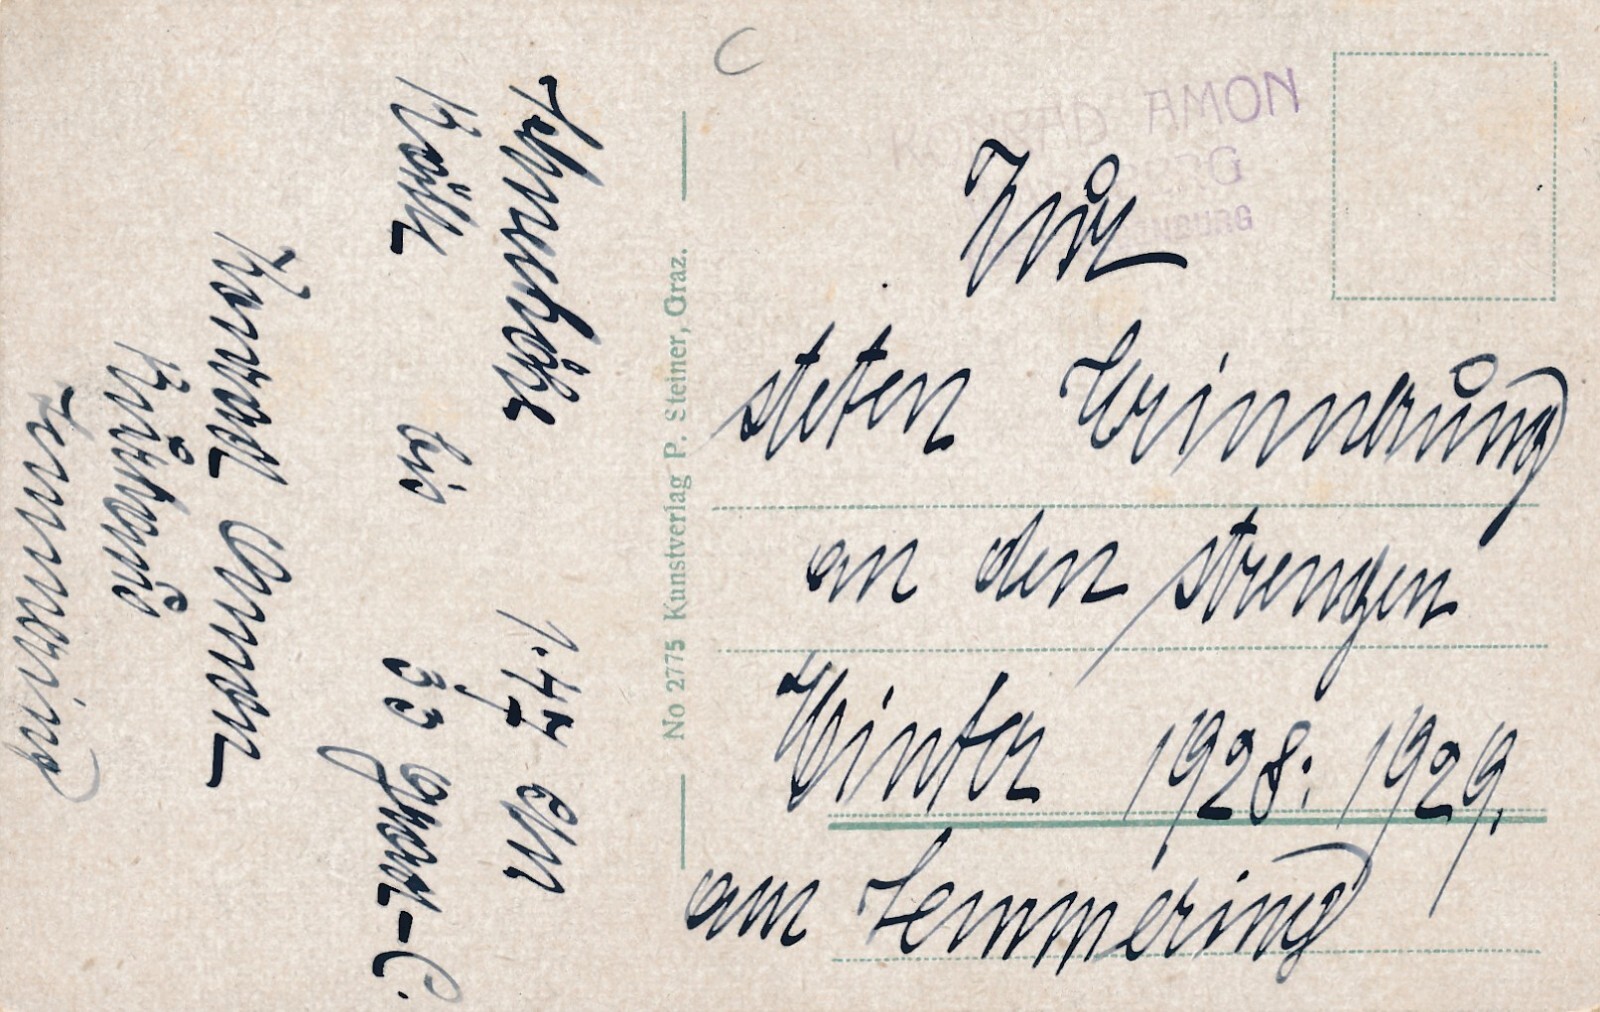 C
KONRAD AMON
Zur
steten Erinnerung
an den strengen
Winter 1928: 1929.
am Semmering
No 2775 Kunstverlag P. Steiner, Graz.
Schneehöhe 1.47 Cm
Kälte bis 30 Grad-C.
Konrad Amon
Kurhaus
Semmering